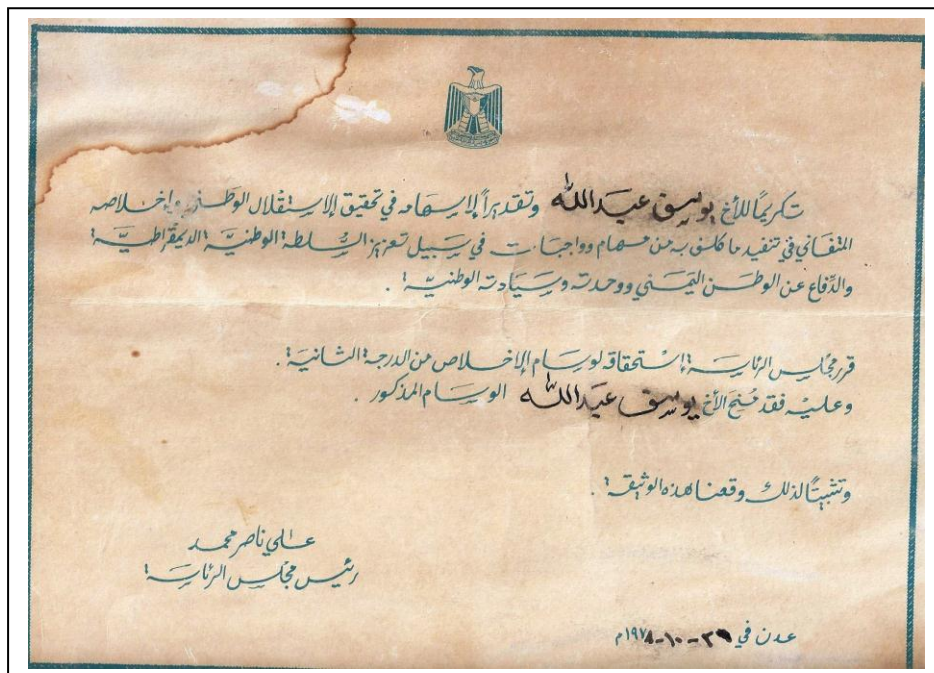 تكريمًا للأخ يوسف عبدالله وتقديرًا لإسهامه في تحقيق الاستقلال الوطني وإخلاصه
المتفاني في تنفيد ما كلف به من مهام وواجبات في سبيل تعزيز السلطة الوطنية الديمقراطية
والدّفاع عن الوطن اليمني ووحدته وسيادته الوطنية .
قرر مجلس الرئاسة إستحقاقه لوسام الإخلاص من الدرجة الثانية .
وعليه فقد مُنح الأخ يوسف عبدالله الوسام المذكور .
وتثبيتًا لذلك وقعنا هذه الوثيقة .
علي ناصر محمد
رئيس مجلس الرئاسة
عدن في -١٠-١٩٧٨م